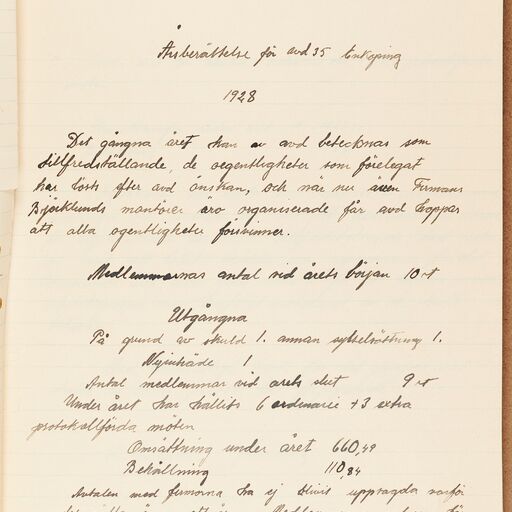 Årsberättelse för avd 35 Enköping
1928
Det gångna året kan av avd betecknas som
tillfredställande, de oegentligheter som förelegat
har lösts efter avd önskan, och när nu även Firmans
Björklunds montörer äro organiserade får avd hoppas
att alla ogentligheter försvinner.
Medlemmarnas antal vid årets början 10 st
Utgångna
På grund av skuld 1. annan sysselsättning 1.
Nyinträde 1
Antal medlemmar vid årets slut 9 st
Under året har hållits 6 ordinarie + 3 extra
protokollförda möten
Omsättning under året 660,49
Behållning 110,84
Avtalen med firmorna ha ej blivit uppsagda varför